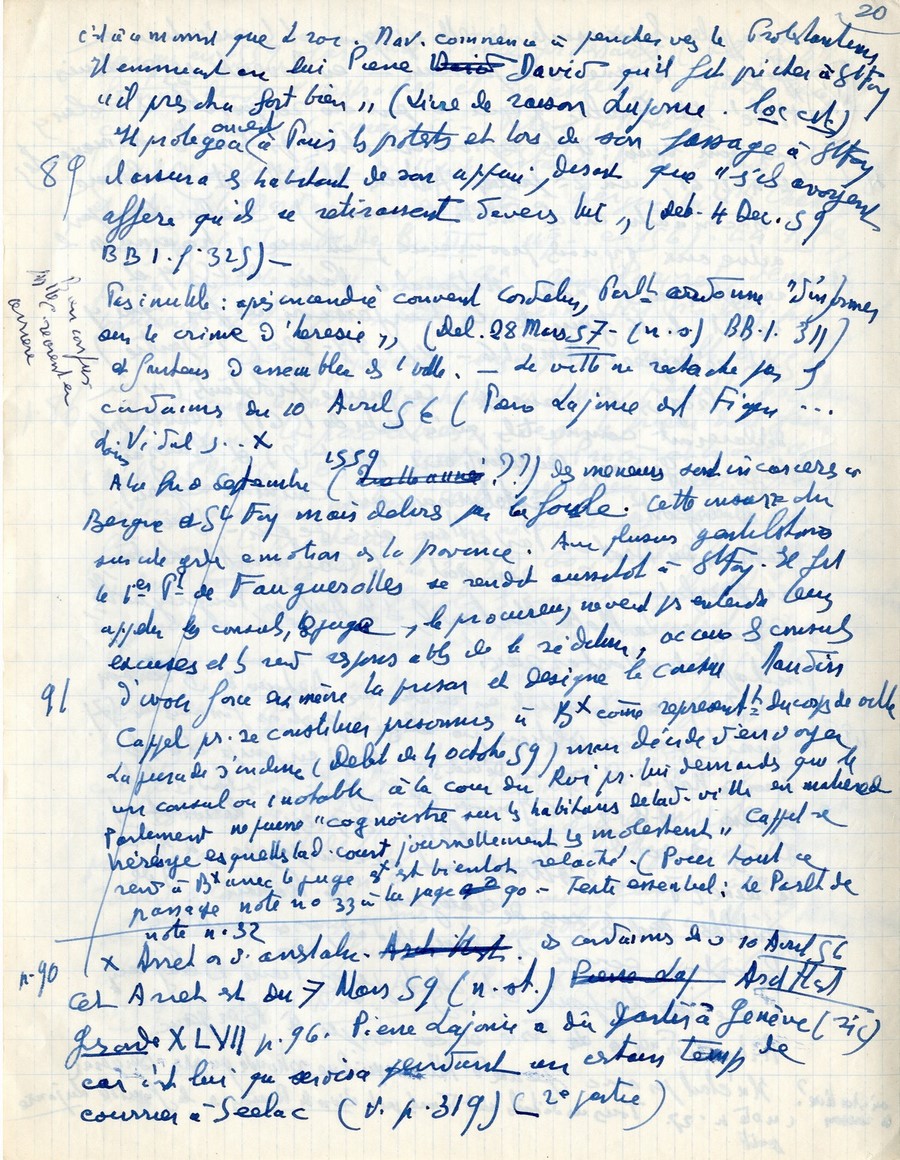 20
c'est à ce moment que Ant. Nav. commence à pencher vers le Protestantisme
Il emmenait av. lui Pierre David qu'il fit prêcher à Ste Foy
"il prescha fort bien" (Livre de raison Lajonie. loc cit)
Il protegea ouvert à Paris les protests et lors de son passage à Ste Foy
89
il assura les habitant de son appui, disant que "s'ils avoyent
affere qu'ils se retirassent devers lui" (Delib. 4 Dec. 59
BB 1. f. 325) —
Pas inutile : après incendie couvent Cordeliers, Parlt ordonne "d'informer
sur le crime d'heresie" (Del. 28 Mars 57 - (n. s) BB. 1. 311)
et fauteurs d'assemblées ds l'ville. — La ville ne rechercha pas les
condamnés du 10 Avril 56 (Pierre Lajonie dit Figou ...
Louis Vidal s... x
Bien confus
il fille revenir en
arriere
1559
A la fin de Septembre ( ??) des meneurs sont incarcérés à
Bergerac et Ste Foy mais délivrés par la foule. Cette mesure du
suscite grde emotion ds la province. Avec plusieurs gentilshommes
le 1er Pt de Fauguerolles se rendit aussitot à Ste Foy. Il fit
appeler les consuls, le juge, le procureur, ne veut pas entendre leurs
excuses et les rend responsables de la sédition, accuse les consuls
91
d'avoir forcé eux même la prison et designe le consul Naudin
Cappel pr. se constituer prisonnier à Bx come representt du corps de ville
La jurade s'incline (Delib de 4 octobre 59) mais décide d'envoyer
un consul ou 1 notable à la cour du Roi pr. lui demander que le
Parlement ne puisse "cognoistre sur les habitans de lad. ville en matiere de
hérésye esquelles lad. court journellement les molestent" Cappel se
rend à Bx avec le juge et est bientôt relaché. (Pour tout ce
passage note no 33 à la page 90 - Texte essentiel : le Parlt de
note n. 32
p. 90
x Arret des condamnés du 10 Avril 56
Cet Arret est du 7 Mars 59 (n. st.) Arch Hist
Gironde XLVII p. 96. Pierre Lajonie a dû partir à Genève (sic)
car c'est lui qui servira pendant un certain temps de
courrier à Seelac (V. p. 319) (2e partie)